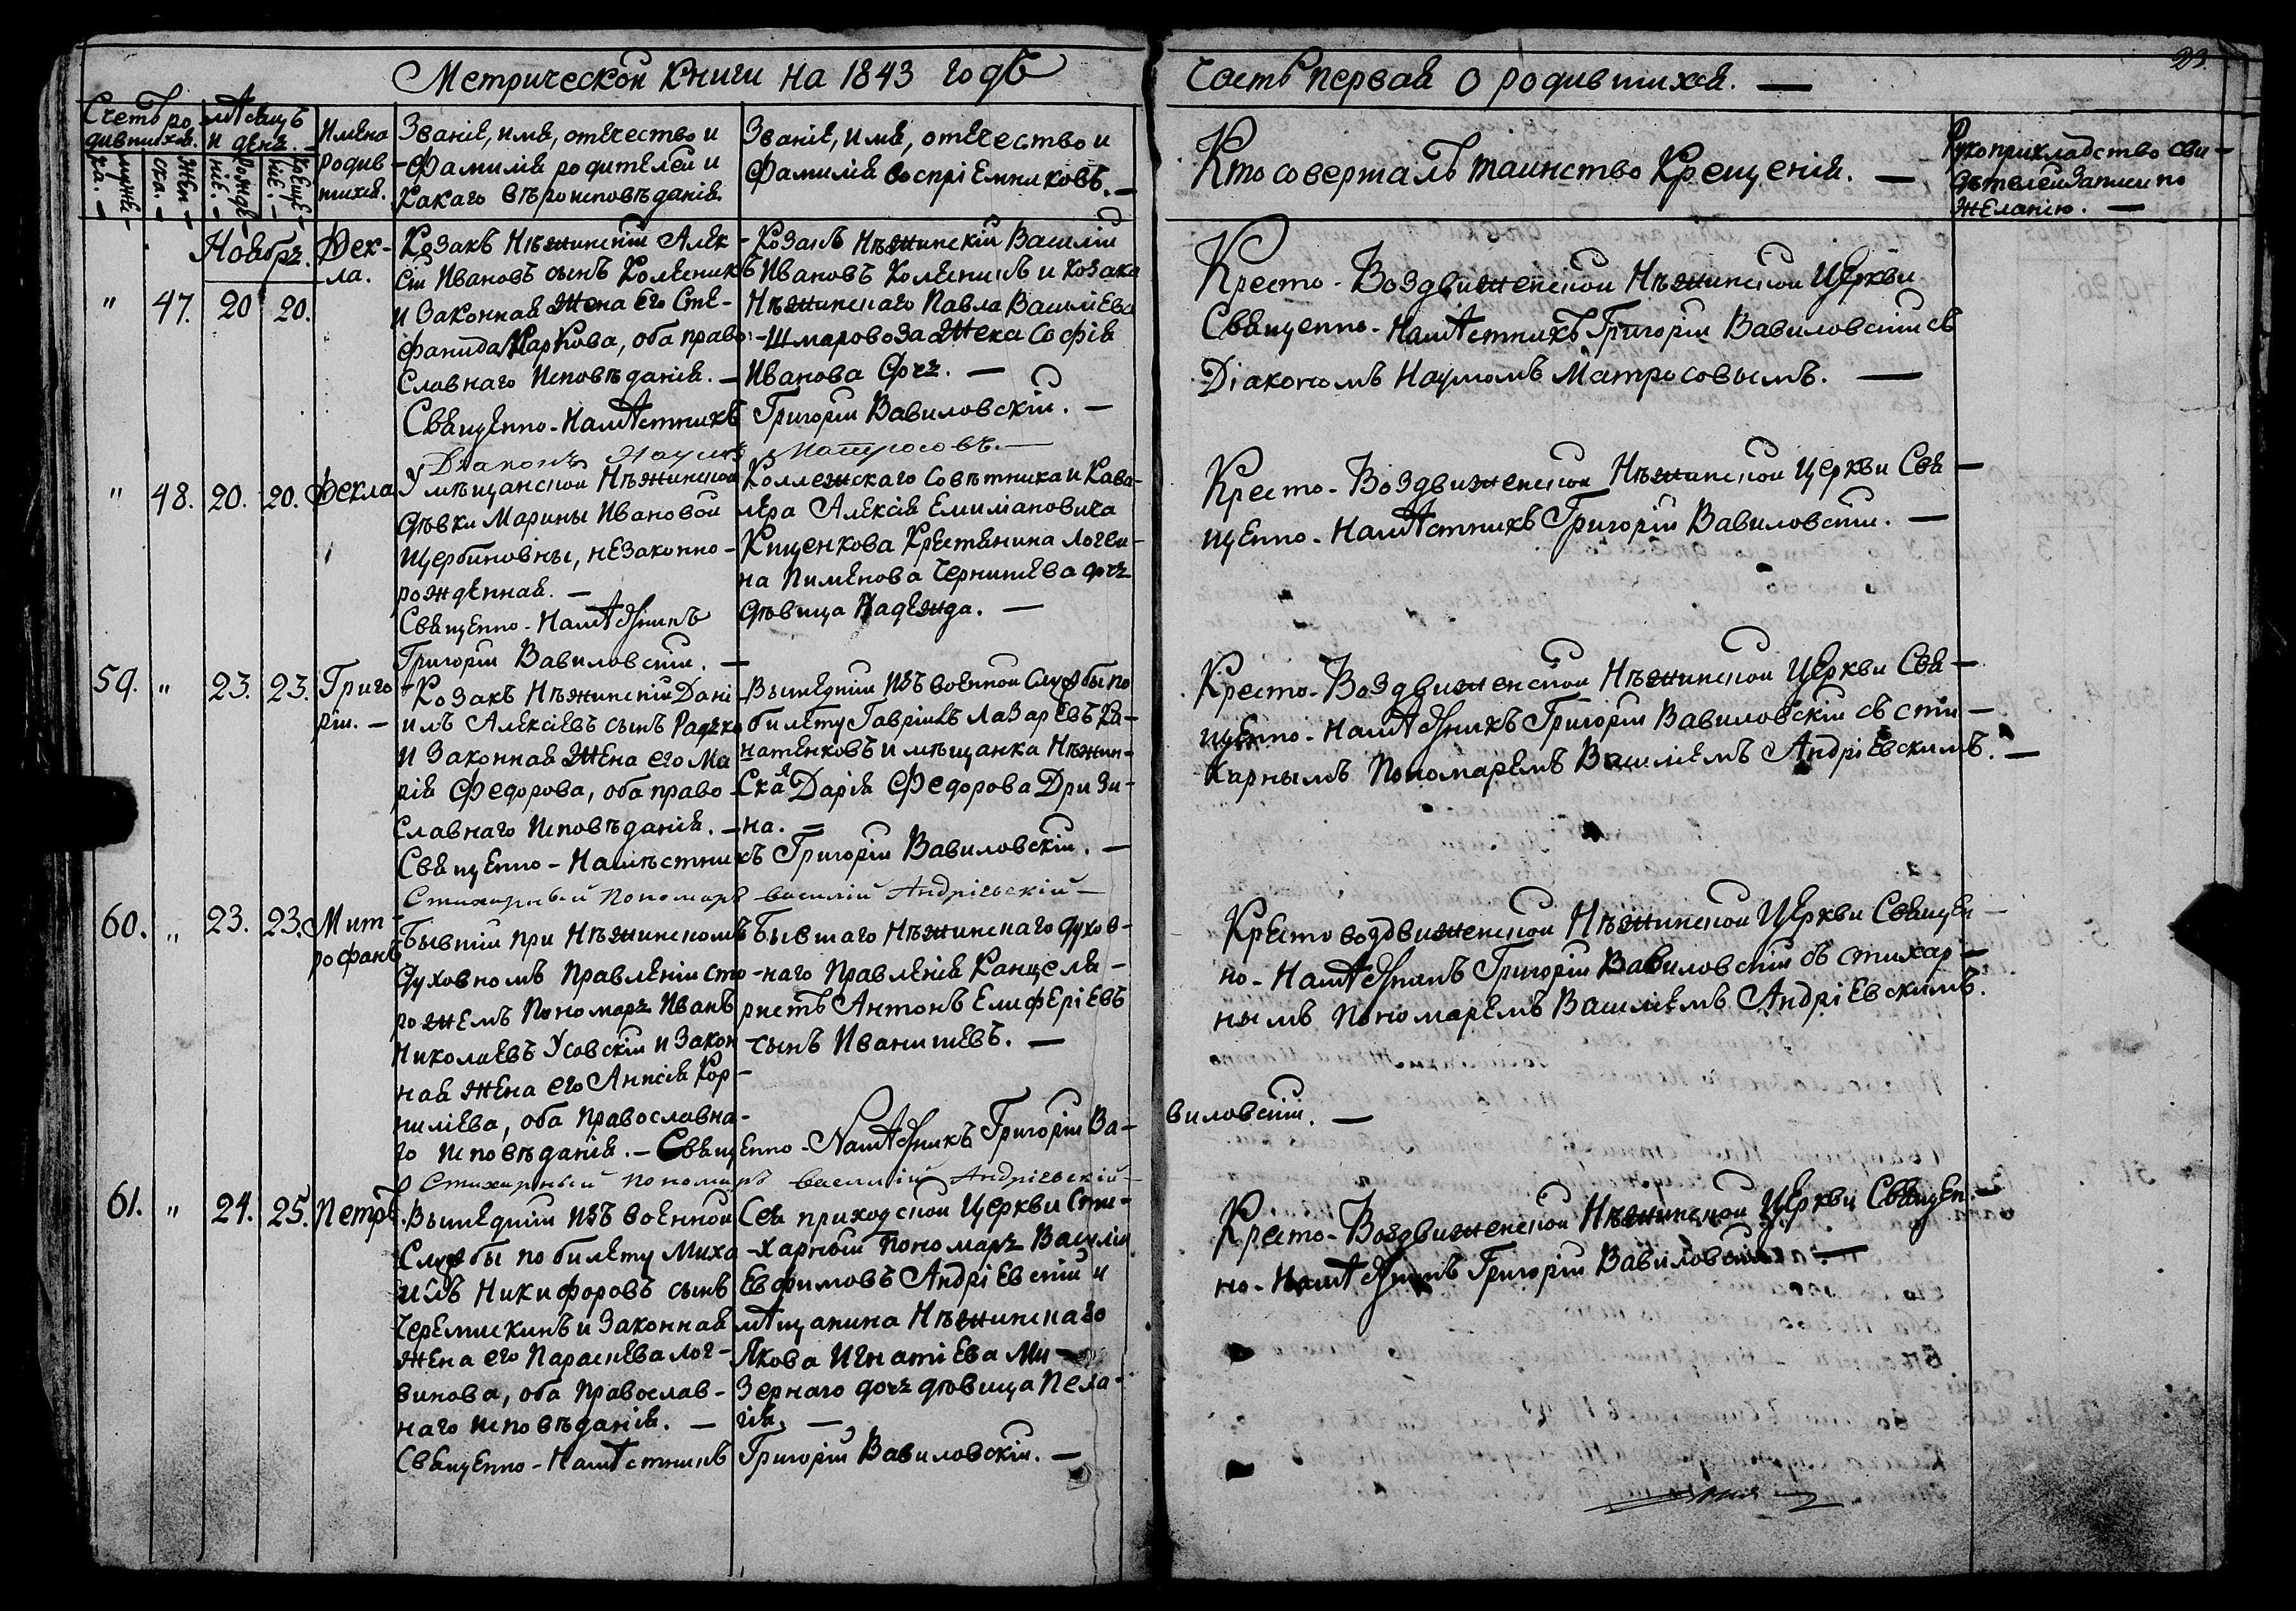 Метрической книги на 1843 годъ
Часть первая о родившихся. —
23.
Счетъ ро-
дившихся.
мѣсяцъ
и день.
Имена
родив-
шихся.
Званіе, имя, отечество и
Фамилія родителей и
какаго вѣроисповѣданія.
Званіе, имя, отечество и
Фамилія воспріемниковъ. —
Кто совершалъ таинство Крещенія. —
Рукоприкладство сви-
дѣтелей записи по
желанію. —
муже-
ска. —
жен-
ска. —
рожде-
ніе. —
креще-
ніе. —
Ноябрь.
" 47. 20 20.
Фек-
ла.
Козакъ Нѣжинскій Алек-
сій Ивановъ сынъ Колесникъ
и Законная Жена его Сте-
фанида Маркова, оба право-
славнаго Исповѣданія. —
Козакъ Нѣжинскій Василій
Ивановъ Колесникъ и козака
Нѣжинскаго Павла Васильева
Шмаровоза Жена Софія
Иванова дочь. —
Священно-Намѣстникъ Григорій Вавиловскій. —
Діаконъ Наумъ Матросовъ. —
Кресто-Воздвиженской Нѣжинской Церкви
Священно-Намѣстникъ Григорій Вавиловскій съ
Діакономъ Наумомъ Матросовымъ. —
" 48. 20. 20. Фекла
У мѣщанской Нѣжинской
дѣвки Марины Ивановой
Щербиновны, незаконно-
рожденная. —
Священно-Намѣстникъ
Григорій Вавиловскій. —
Коллежскаго Совѣтника и Кава-
лера Алексія Емиліановича
Кищенкова Крестянина Логви-
на Пименова Чернишева дочь
дѣвица Надежда. —
Кресто-Воздвиженской Нѣжинской Церкви Свя-
щенно-Намѣстникъ Григорій Вавиловскій. —
59. " 23. 23. Григо-
рій. —
Козакъ Нѣжинскій Дані-
илъ Алексіевъ сынъ Радько
и Законная Жена его Ма-
рія Федорова, оба право-
славнаго Исповѣданія. —
Вышедшій изъ военной службы по
билету Гавріилъ Лазаревъ Ка-
натенковъ и мѣщанка Нѣжин-
ская Дарія Федорова Дризи-
на. —
Священно-Намѣстникъ Григорій Вавиловскій. —
Стихарный Пономарь Василій Андріевскій —
Кресто-Воздвиженской Нѣжинской Церкви Свя-
щенно-Намѣстникъ Григорій Вавиловскій съ сти-
харнымъ Пономаремъ Василіемъ Андріевскимъ. —
60. " 23. 23. Мит-
рофанъ
Бывшій при Нѣжинскомъ
Духовномъ Правленіи сто-
рожемъ Пономарь Иванъ
Николаевъ Усовскій и Закон-
ная Жена его Анисія Кор-
ниліева, оба Православна-
го Исповѣданія. — Священно-Намѣстникъ Григорій Ва-
виловскій. —
Бывшаго Нѣжинскаго духов-
наго Правленія Канцеля-
ристъ Антонъ Елиферіевъ
сынъ Иванишевъ. —
Стихарный Пономарь Василій Андріевскій —
Крестовоздвиженской Нѣжинской Церкви Священ-
но-Намѣстникъ Григорій Вавиловскій съ стихар-
нымъ Пономаремъ Василіемъ Андріевскимъ.
61. " 24. 25. Петръ.
Вышедшій изъ военной
Службы по билету Миха-
илъ Никифоровъ сынъ
Черемискинъ и Законная
Жена его Параскева Лог-
винова, оба Православ-
наго исповѣданія. —
Сея приходской Церкви сти-
харный Пономарь Василій
Евфимовъ Андріевскій и
мѣщанина Нѣжинскаго
Якова Игнатіева Ми-
зернаго дочь дѣвица Пела-
гія. —
Священно-Намѣстникъ Григорій Вавиловскій. —
Кресто-Воздвиженской Нѣжинской Церкви Священ-
но-Намѣстникъ Григорій Вавиловскій. —